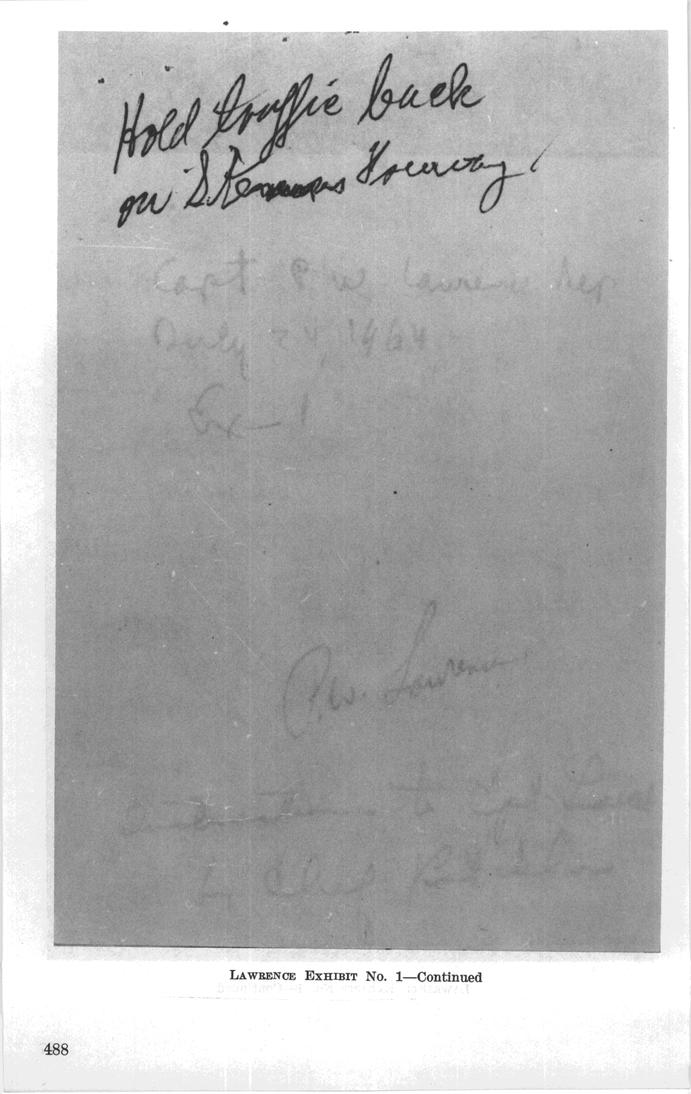 Hold traffic back
on Stemmons Freeway
Capt P W Lawrence Dep
July 24, 1964
Ex-1
P.W. Lawrence
to Capt
by Chief
LAWRENCE EXHIBIT No. 1—Continued
488